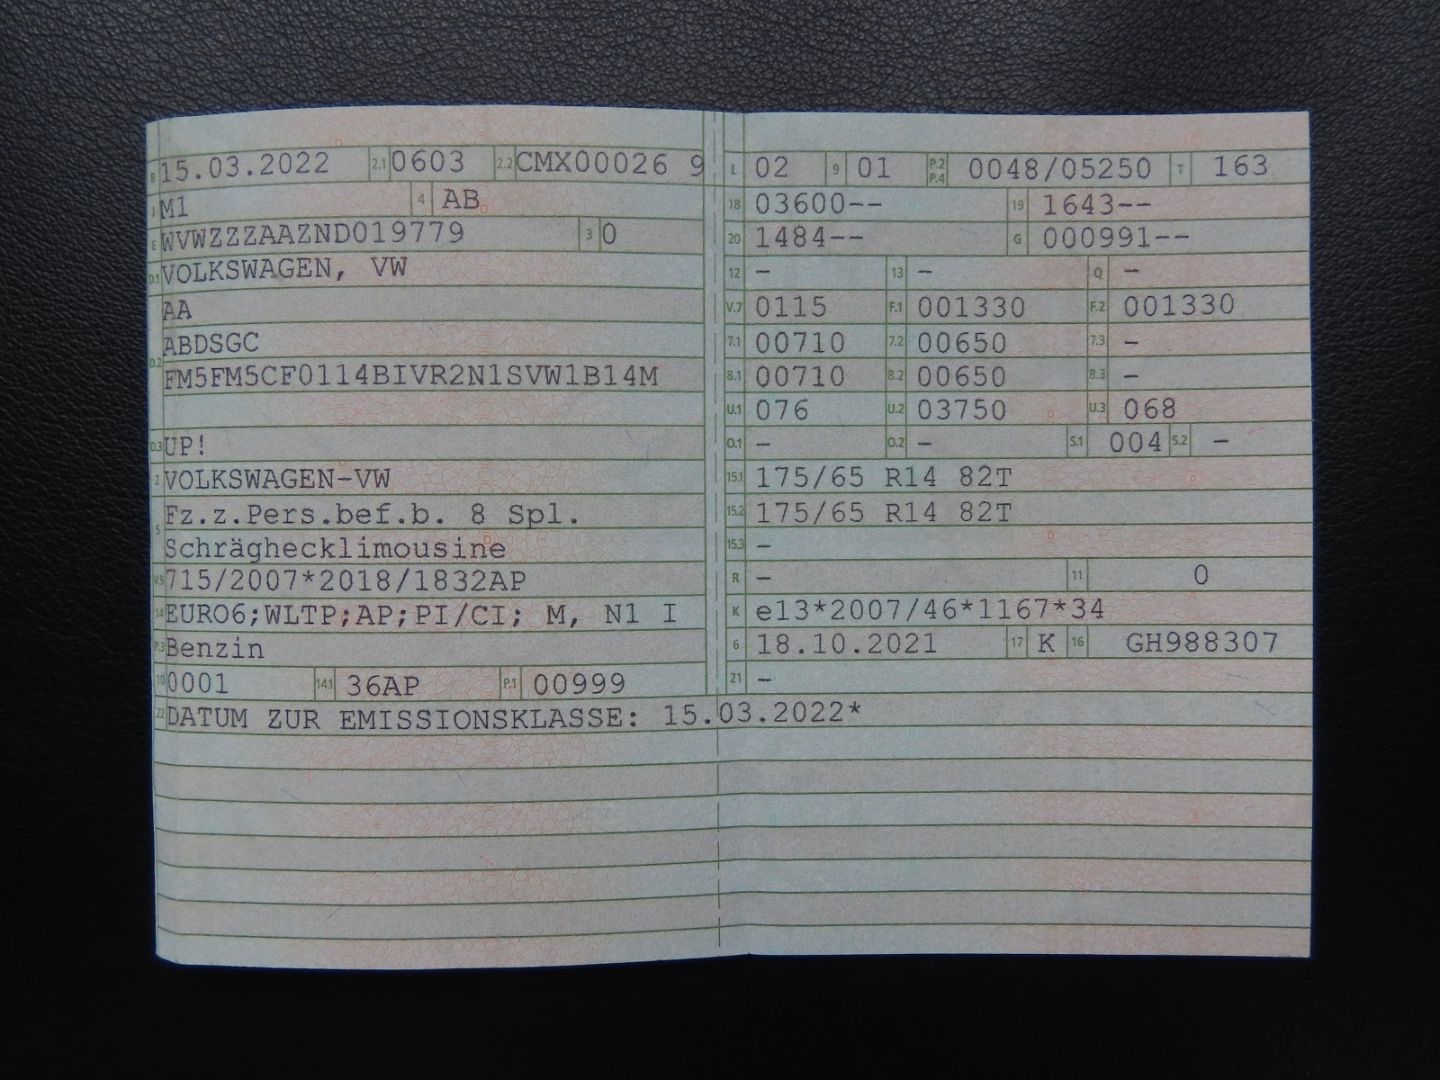 B 15.03.2022 2.1 0603 2.2 CMX00026 9
J M1 4 AB
E WVWZZZAAZND019779 3 0
D.1 VOLKSWAGEN, VW
AA
D.2 ABDSGC
FM5FM5CF0114BIVR2N1SVW1B14M
D.3 UP!
2 VOLKSWAGEN-VW
5 Fz.z.Pers.bef.b. 8 Spl.
Schräghecklimousine
V.9 715/2007*2018/1832AP
14 EURO6;WLTP;AP;PI/CI; M, N1 I
P.3 Benzin
10 0001 14.1 36AP P.1 00999
L 02 9 01 P.2 P.4 0048/05250 T 163
18 03600-- 19 1643--
20 1484-- G 000991--
12 - 13 - Q -
V.7 0115 F.1 001330 F.2 001330
7.1 00710 7.2 00650 7.3 -
8.1 00710 8.2 00650 8.3 -
U.1 076 U.2 03750 U.3 068
O.1 - O.2 - S.1 004 S.2 -
15.1 175/65 R14 82T
15.2 175/65 R14 82T
15.3 -
R - 11 0
K e13*2007/46*1167*34
6 18.10.2021 17 K 16 GH988307
21 -
22 DATUM ZUR EMISSIONSKLASSE: 15.03.2022*